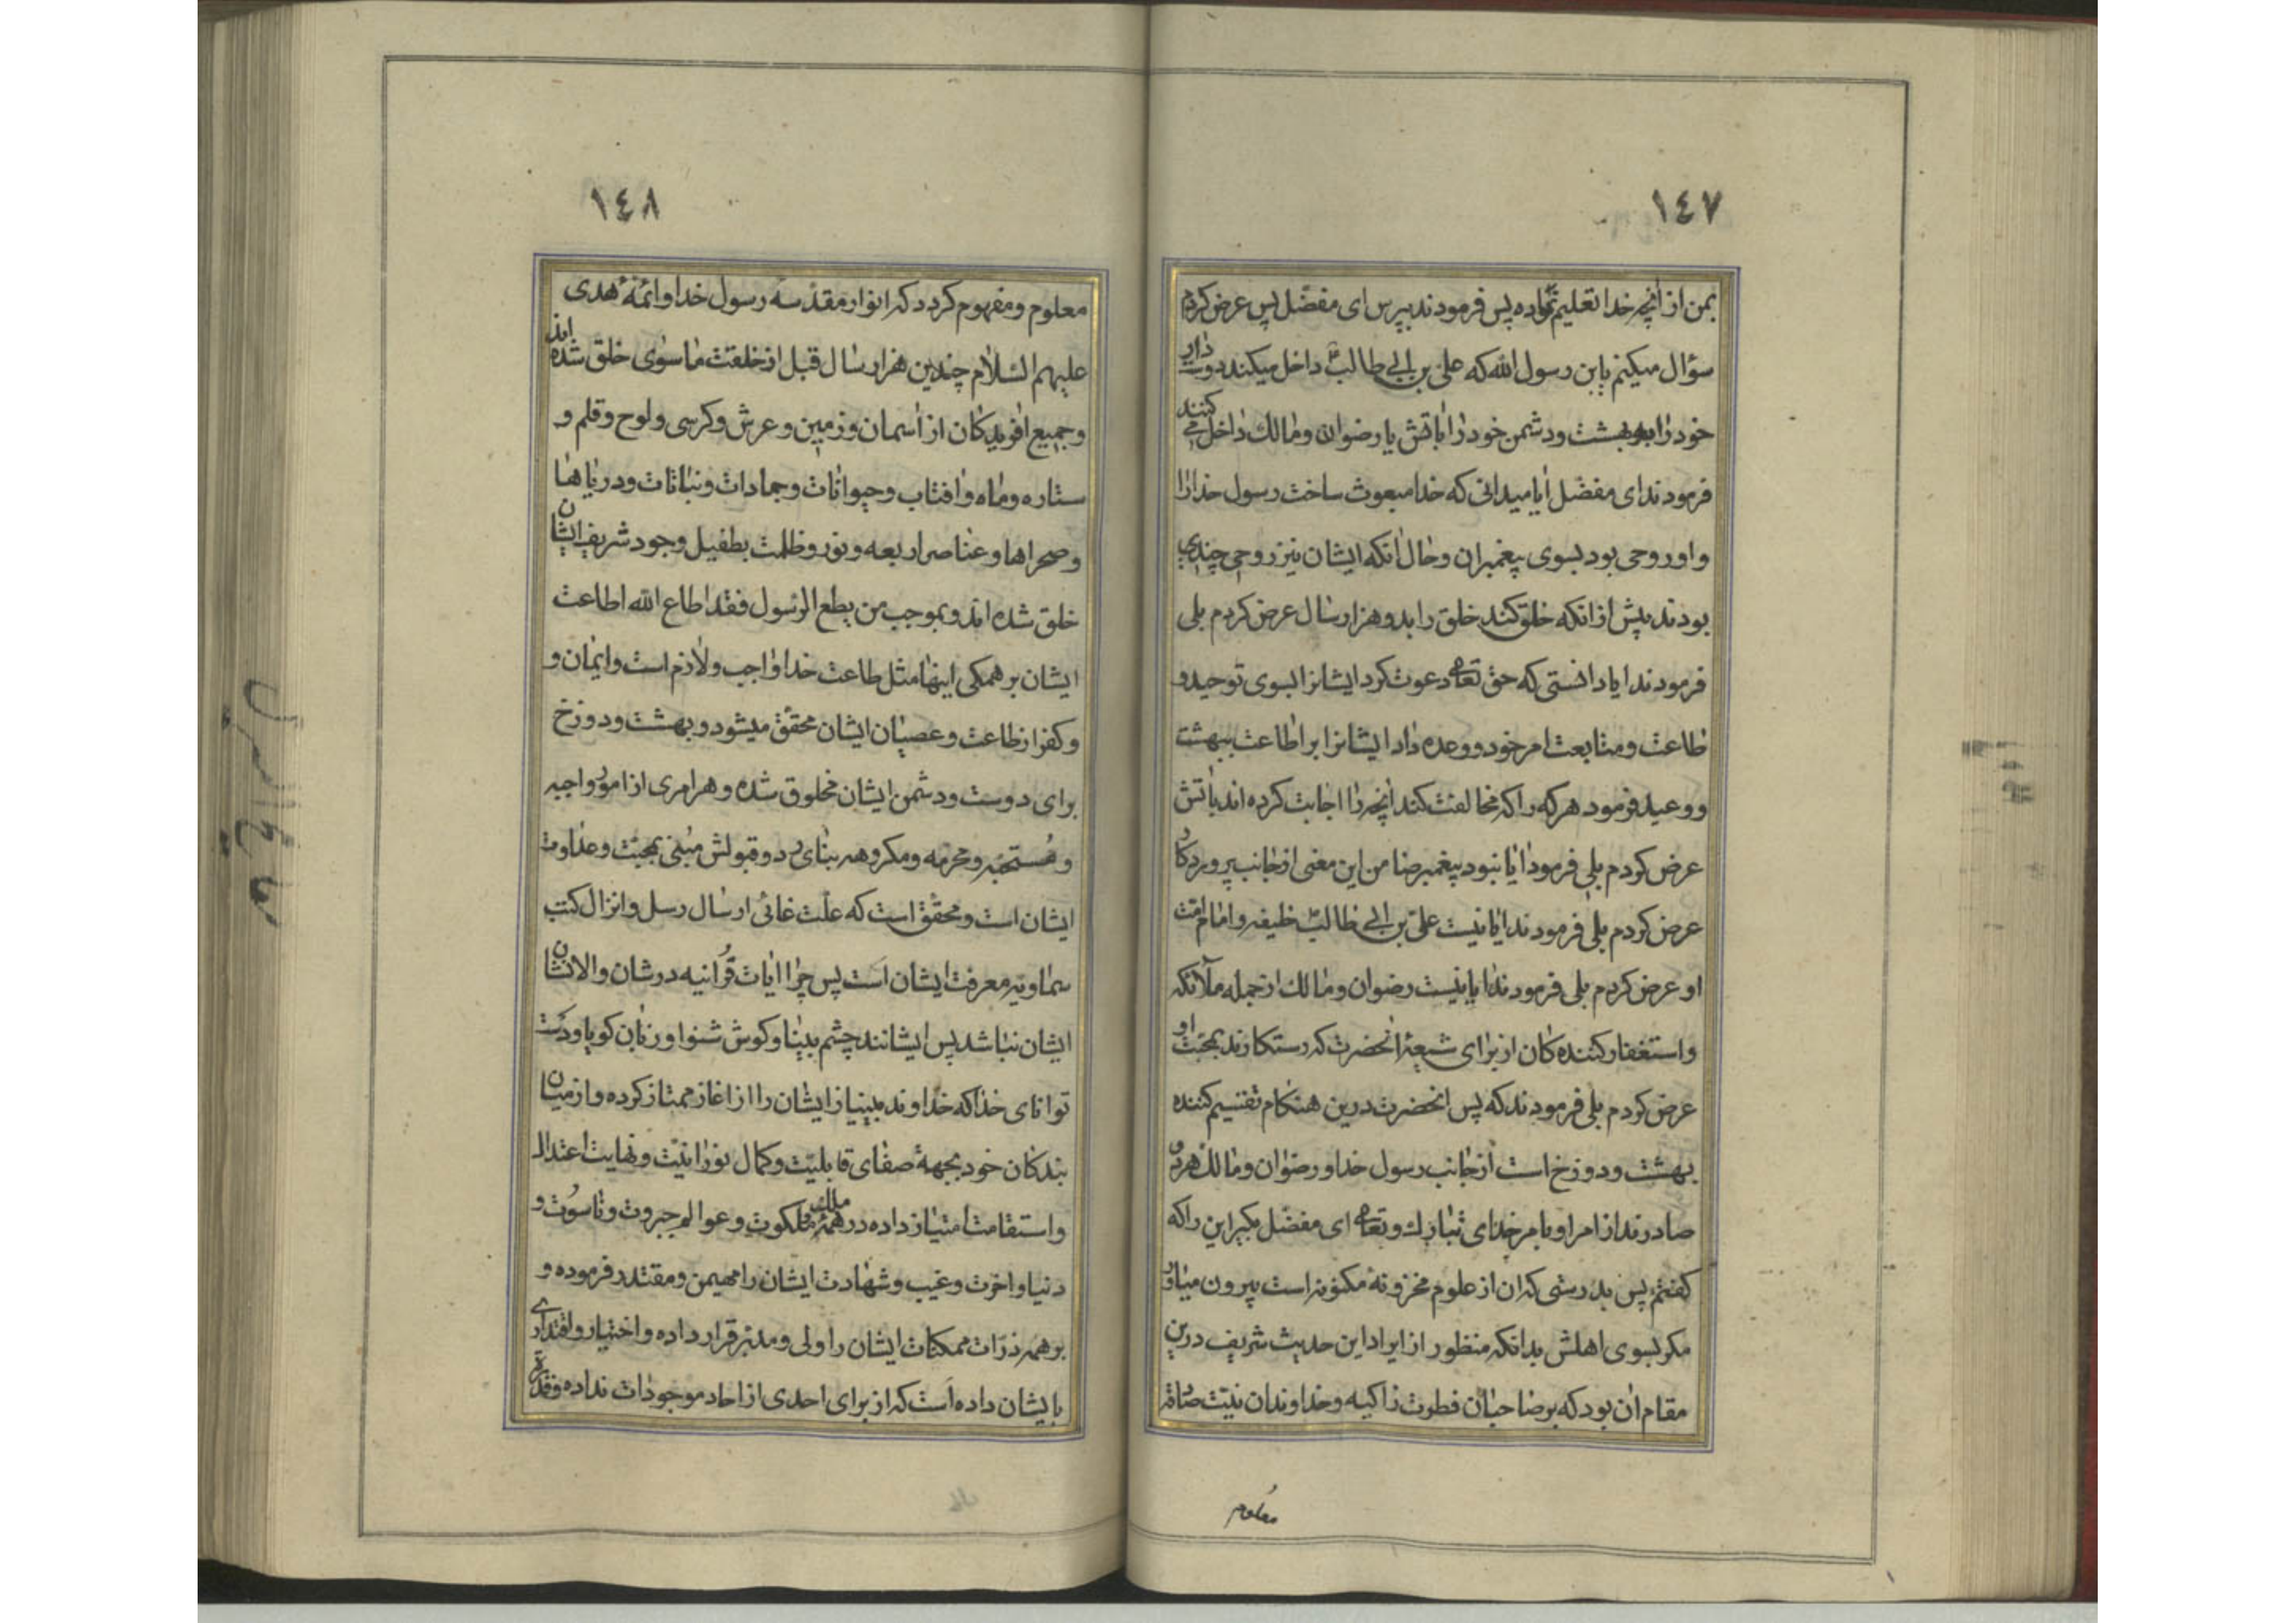 ١٤٧
بمن از آنچه خدا تعلیم تو داده پس فرمودند بپرس ای مفضّل پس عرض کردم
سؤال میکنم یابن رسول الله که علی بن ابی طالبؑ داخل میکند دوست دار
خود را ببهشت و دشمن خود را باتش یا رضوان و مالک داخل می کنند
فرمودند ای مفضّل آیا میدانی که خدا مبعوث ساخت رسول خدا را
و او روحی بود بسوی پیغمبران و حال آنکه ایشان نیز روحی چندی
بودند پیش از آنکه خلق کند خلق را بدو هزار سال عرض کردم بلی
فرمودند ایا دانستی که حق تعالی دعوت کرد ایشانرا بسوی توحید و
طاعت و متابعت امر خود و وعده داد ایشانرا بر اطاعت ببهشت
و وعید فرمود هر که را که مخالفت کند آنچه را اجابت کرده اند باتش
عرض کردم بلی فرمود آیا نبود پیغمبر ضامن این معنی از جانب پروردکار
عرض کردم بلی فرمودند ایا نیست علی بن ابی طالبؑ خلیفه و امام امت
او عرض کردم بلی فرمودند ایا نیست رضوان و مالک از جمله ملائکه
و استغفار کننده کان از برای شیعهٔ آنحضرت که رستکارند بمحبت او
عرض کردم بلی فرمودند که پس آنحضرت درین هنکام تقسیم کننده
بهشت و دوزخ است از جانب رسول خدا و رضوان و مالک هر دو
صادرند از امر او بامر خدای تبارک و تعالی ای مفضّل بکیر این را که
کفتم پس بدرستی که ان از علوم مخزونهٔ مکنونه است بیرون میاور
مکر بسوی اهلش بدانکه منظور از ایراد این حدیث شریف درین
مقام ان بود که بر صاحبان فطرت زاکیه و خداوندان نیّت صادقه
معلوم
١٤٨
معلوم و مفهوم کردد که انوار مقدّسه رسول خدا و ائمّهٔ هدی
علیهم السّلام چندین هزار سال قبل از خلقت ماسوی خلق شده اند
و جمیع آفریدکان از آسمان و زمین و عرش و کرسی و لوح و قلم و
ستاره و ماه و آفتاب و حیوانات و جمادات و نباتات و دریاها
و صحراها و عناصر اربعه و نور و ظلمت بطفیل وجود شریف ایشان
خلق شده اند و بموجب من یطع الرّسول فقد اطاع الله اطاعت
ایشان بر همکی اینها مثل طاعت خدا واجب و لازم است و ایمان و
و کفر از طاعت و عصیان ایشان محقّق میشود و بهشت و دوزخ
برای دوست و دشمن ایشان مخلوق شده و هر امری از امور واجبه
و مُستحبّه و محرّمه و مکروهه بنای رد و قبولش مبنی بمحبّت و عداوت
ایشان است و محقّق است که علّت غائی ارسال رسل و انزال کتب
سماویّه معرفت ایشان است پس چرا ایات قُرآنیه در شان والاشان
ایشان نباشد پس ایشانند چشم بینا و کوش شنوا و زبان کویا و دست
توانای خدا که خداوند بینیاز ایشان را از اغاز ممتاز کرده و از میان
بندکان خود بجهة صفای قابلیّت و کمال نورانیّت و نهایت اعتدال
و استقامت امتیاز داده در همهٔ ملک و ملکوت و عوالم جبروت و ناسُوت و
دنیا و اخرت و غیب و شهادت ایشان را مهیمن و مقتدر فرموده و
بر همه ذرّات ممکنات ایشان را ولی و مدبّر قرار داده و اختیار و اقتداری
بایشان داده است که از برای احدی از احاد موجودات نداده و قدرة